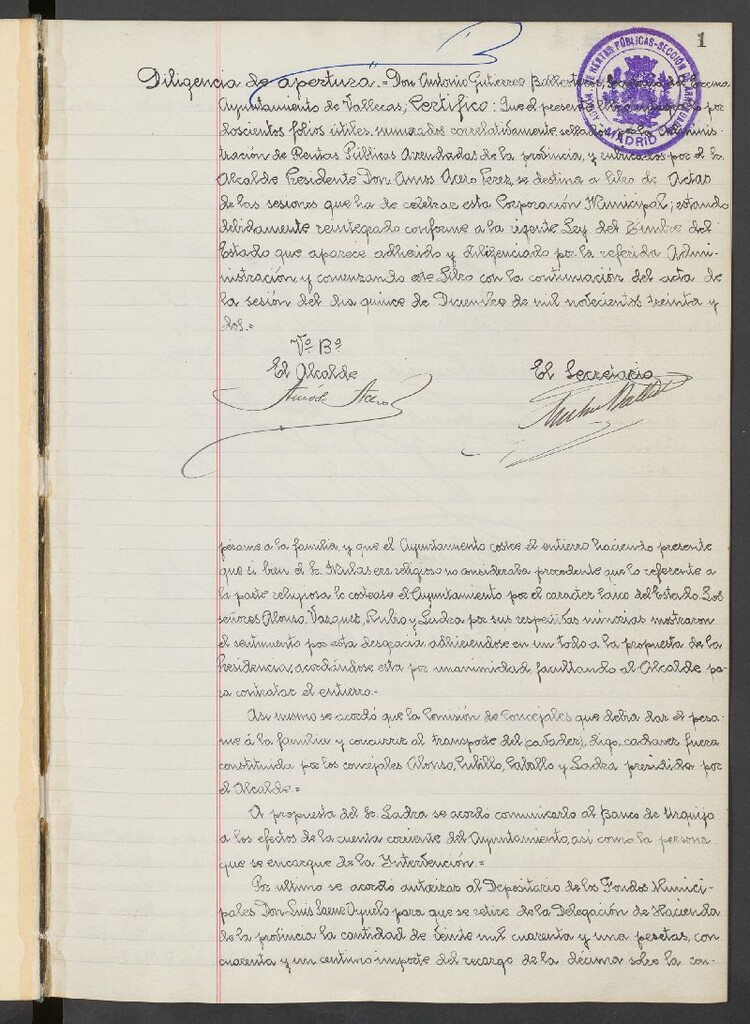 1
ADMON. DE RENTAS PÚBLICAS-SECCIÓN
MADRID
Diligencia de apertura.= Don Antonio Gutierrez Ballesteros, Secretario del Excmo
Ayuntamiento de Vallecas, Certifico: Que el presente libro integrado por
doscientos folios útiles, numerados correlativamente sellados por la Adminis-
tración de Rentas Públicas Arrendadas de la provincia, y rubricados por el Sr.
Alcalde Presidente Don Amos Acero Perez, se destina a libro de Actas
de las sesiones que ha de celebrar esta Corporación Municipal; estando
debidamente reintegrado conforme a la vigente Ley del Timbre del
Estado que aparece adherido y diligenciado por la referida Admi-
nistración y comenzando este Libro con la continuación del acta de
la sesión del dia quince de Diciembre de mil novecientos treinta y
dos.=
Vº Bº
El Alcalde
El Secretario
Amós Acero
pésame a la familia, y que el Ayuntamiento costee el entierro haciendo presente
que si bien el Sr. era religioso no consideraba procedente que lo referente a
la parte religiosa lo costease el Ayuntamiento por el caracter laico del Estado. Los
señores Alonso, Vazquez, Rubio y Ladra por sus respectivas minorias mostraron
el sentimiento por esta desgracia adhiriendose en un todo a la propuesta de la
Presidencia, acordándose esta por unanimidad, facultando al Alcalde pa-
ra contratar el entierro.=
Asi mismo se acordó que la Comisión de Concejales que debia dar el pesa-
me á la familia y concurrir al transporte del (cavader), digo, cadaver fuera
constituida por los concejales Alonso, Rubillo, Carballo y Ladra presidida por
el Alcalde.=
A propuesta del Sr. Ladra se acordó comunicarlo al Banco de Urquijo
a los efectos de la cuenta corriente del Ayuntamiento, así como la persona
que se encargue de la Intervención.=
Por ultimo se acordo autorizar al Depositario de los Fondos Munici-
pales Don Luis Saenz Ayuelo para que se retire de la Delegación de Hacienda
de la provincia la cantidad de veinte mil cuarenta y una pesetas, con
cuarenta y un centimo importe del recargo de la décima sobre la con-